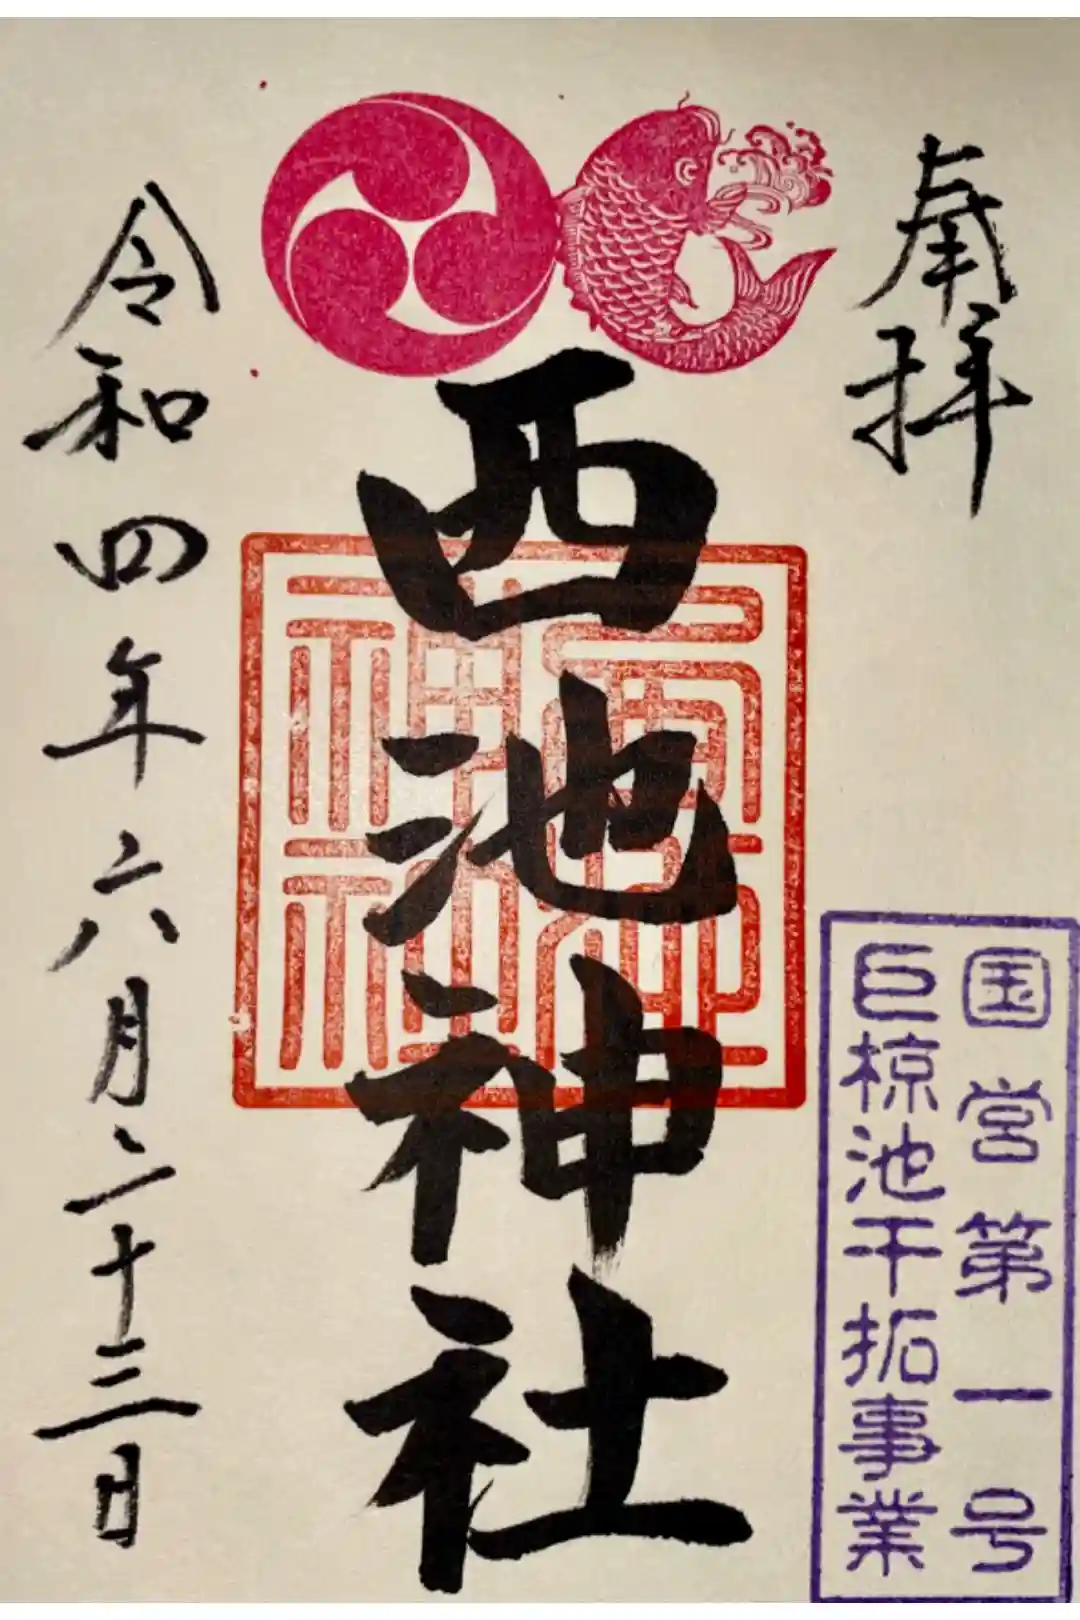 奉拝
国営第一号
巨椋池干拓事業
西池神社
令和四年六月二十三日